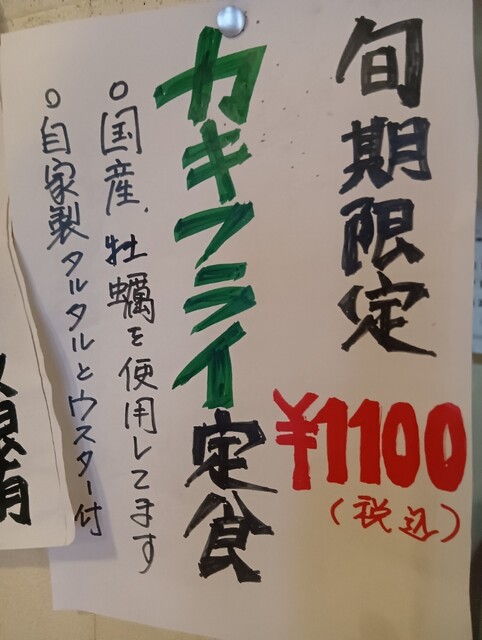 旬期限定
¥1100
(税込)
カキフライ定食
○国産、牡蠣を使用してます
○自家製タルタルとウスター付